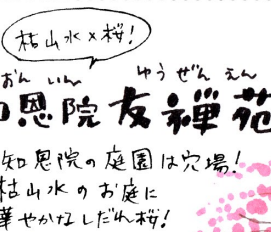 枯山水×桜!
おんいん ゆうぜんえん
恩院友禅苑
知恩院の庭園は穴場!
枯山水のお庭に
華やかなしだれ桜!